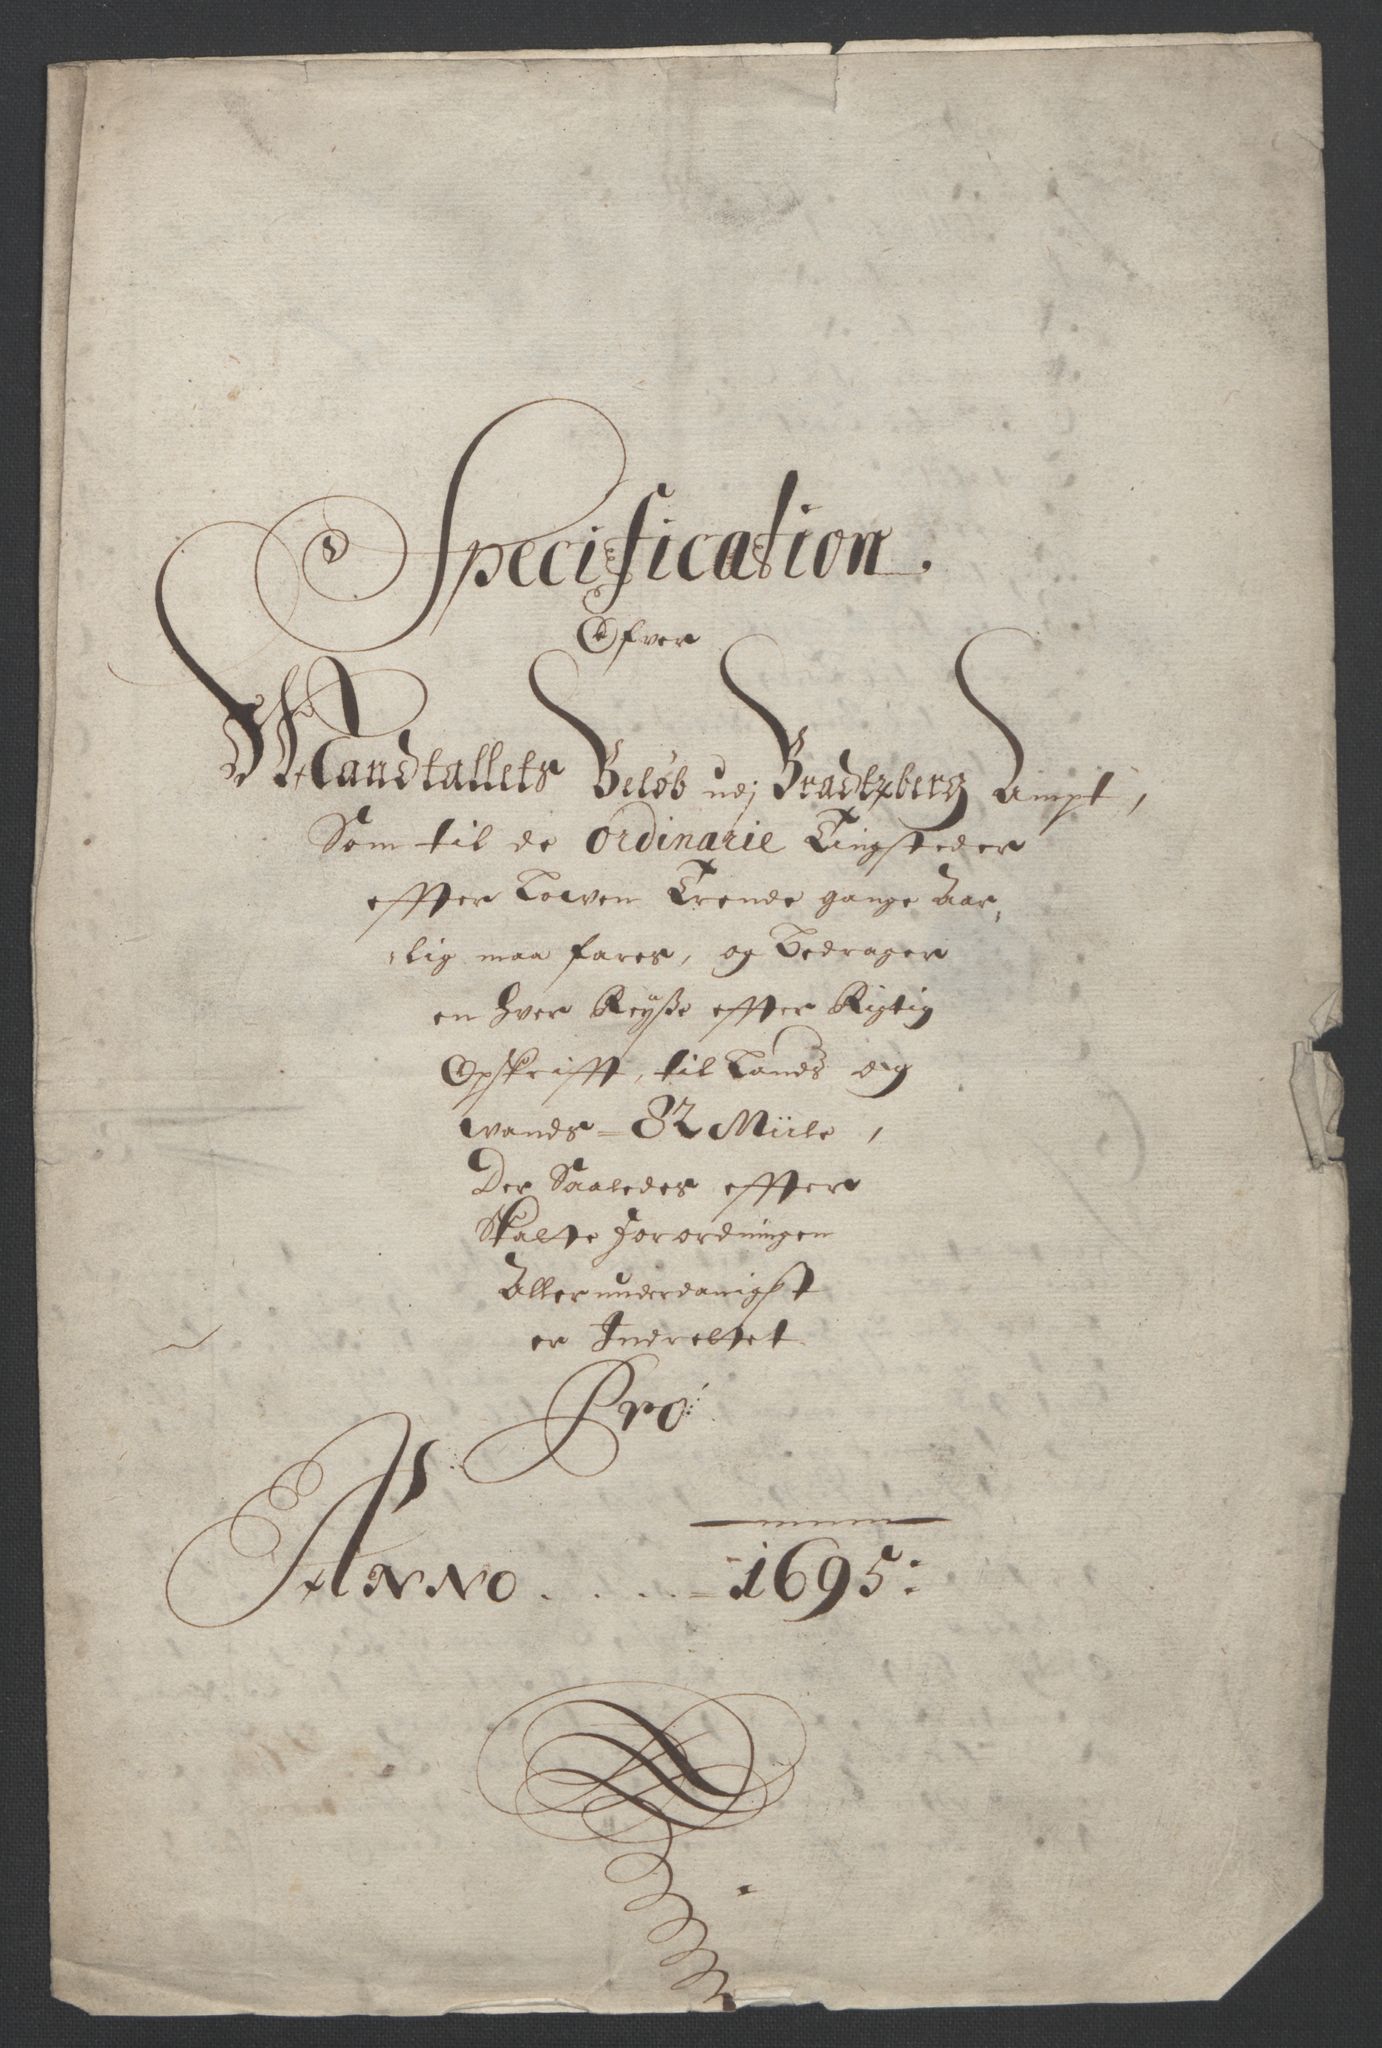 Specification.
Ofver
Mandtallets Beløb udj Bradtzberg Ampt,
Som til de ordinarie Tingsteder
effter Lowen Trende gange Aar,
lig maa fares, og bedrager
en hver Reyße effter Rigtig
Opskrifft, til Lands og
wands = 82 Miile,
Der Saaledes effter
Skatte Forordningen
Allerunderdanigst
er Indrettet
Pro:
ANNO . . . . = 1695: